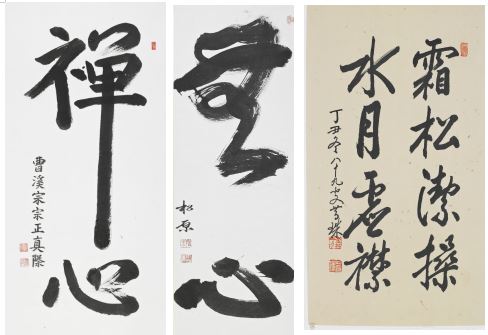 禪心
曹溪宗宗正真際
無心
松原
霜松潔操
水月虛襟
丁丑冬八十九叟